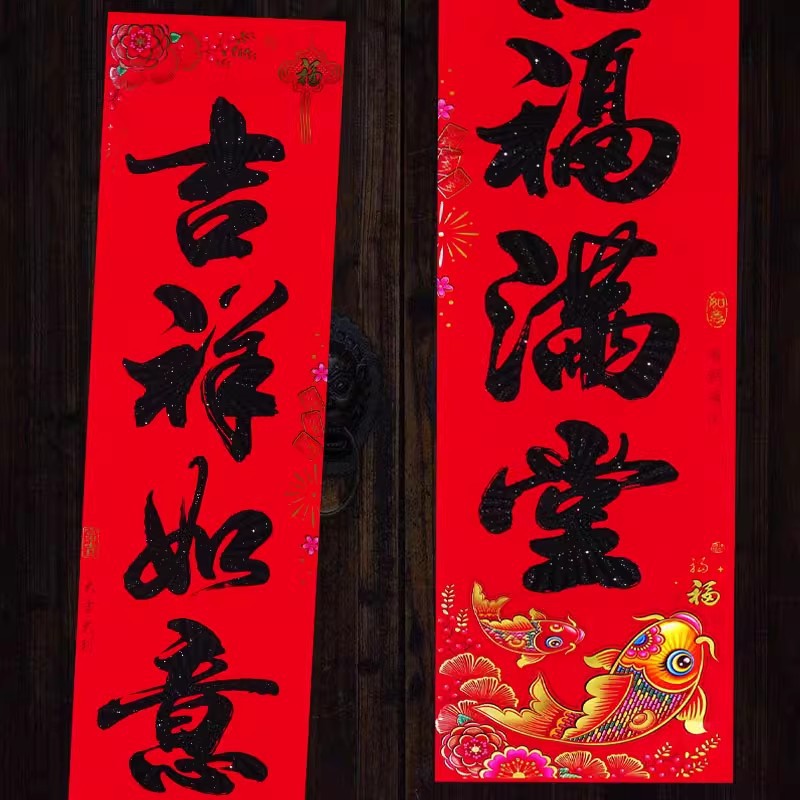 福
吉祥如意
福满堂
福
福